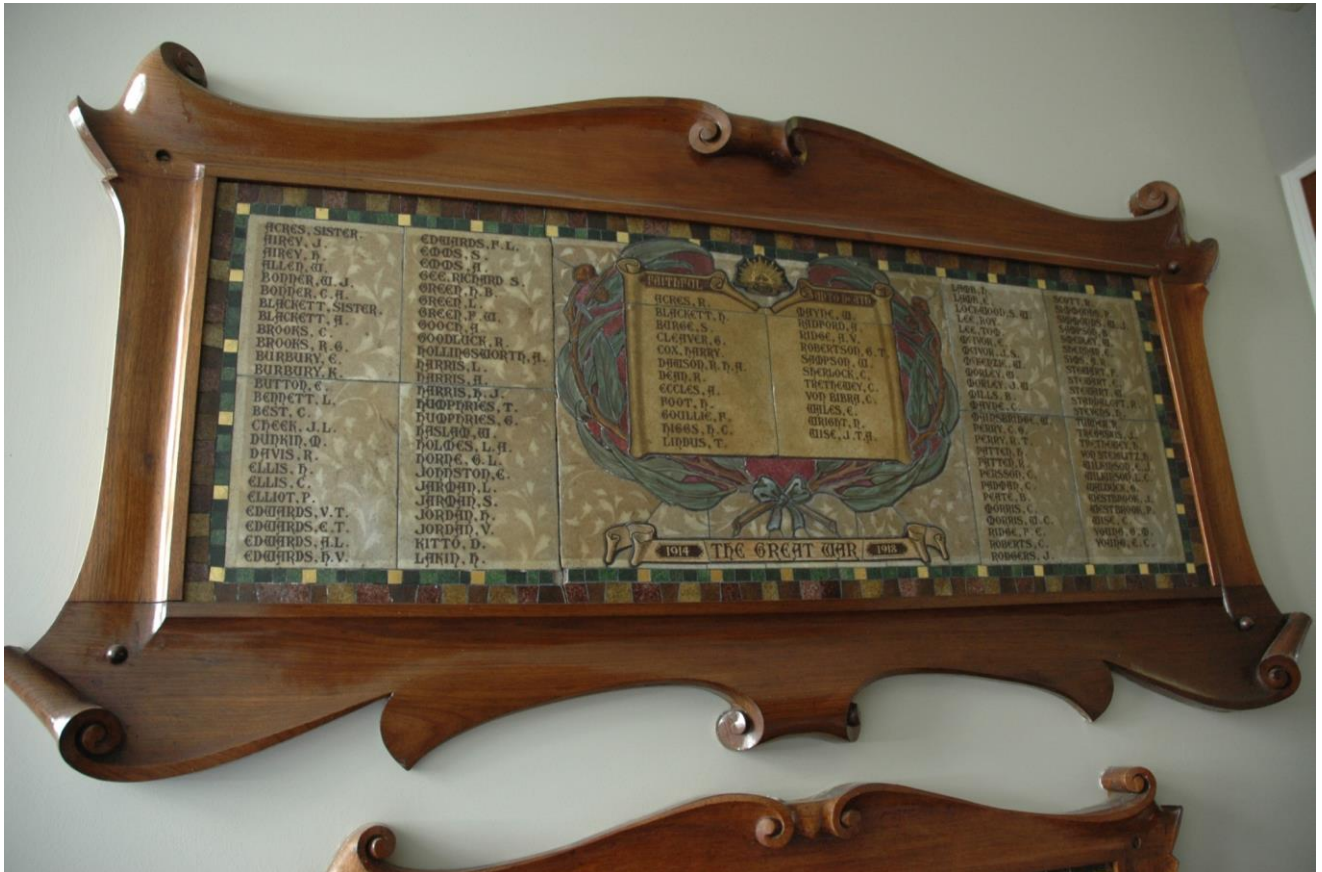 ACRES, SISTER.
AIREY, J.
AIREY, H.
ALLEN, W.
BONNER, W.J.
BONNER, C.A.
BLACKETT, SISTER.
BLACKETT, A.
BROOKS, C.
BROOKS, R.G.
BURBURY, E.
BURBURY, K.
BUTTON, E.
BENNETT, L.
BEST, C.
CHEEK, J.L.
DUNKIN, M.
DAVIS, R.
ELLIS, H.
ELLIS, C.
ELLIOT, P.
EDWARDS, V.T.
EDWARDS, E.T.
EDWARDS, A.L.
EDWARDS, H.V.
EDWARDS, F.L.
EMMS, S.
EMMS, A.
GEE, RICHARD S.
GREEN, H.B.
GREEN, L.
GREEN, F.W.
GOOCH, A.
GOODLUCK, R.
HOLLINGSWORTH, A.
HARRIS, L.
HARRIS, A.
HARRIS, H.J.
HUMPHRIES, T.
HUMPHRIES, G.
HASLAM, W.
HOLMES, L.A.
HORNE, G.L.
JOHNSTON, E.
JARMAN, L.
JARMAN, S.
JORDAN, H.
JORDAN, V.
KITTO, D.
LAKIN, H.
FAITHFUL
UNTO DEATH
ACRES, R.
BLACKETT, H.
BURGE, S.
CLEAVER, G.
COX, HARRY.
DAWSON, R.H.A.
DEAN, R.
ECCLES, A.
FOOT, H.
GOULLIE, F.
HIGGS, H.C.
LINDUS, T.
MAYNE, W.
RADFORD, A.
RIDGE, A.V.
ROBERTSON, G.T.
SAMPSON, W.
SHERLOCK, C.
TRETHEWEY, C.
VON BIBRA, C.
WALES, E.
WRIGHT, H.
WISE, J.T.A.
1914 THE GREAT WAR 1918
LAMB, H.
LAMB, E.
LOCKWOOD, S.W.
LEE, ROY.
LEE, TOD
MORLEY, W.
MORLEY, J.W.
MILLS, R.
MAYNE, C.
MAINSBRIDGE, W.
PERRY, C.G.
PERRY, R.T.
PATTEN, H.
PATTEN, R.
PERSSON, C.
PEATE, B.
MORRIS, C.
MORRIS, W.C.
RIDGE, F.E.
ROBERTS, C.
RODGERS, J.
SCOTT, R.
STEWART, F.
STEWART, C.
STEWART, G.
STEVENS, H.
TURNER, R.
TRETHEWEY, S.
VON STIEGLITZ, R.
WILKINSON, E.J.
WILKINSON, L.C.
WESTBROOK, J.
WESTBROOK, P.
WISE, C.
YOUNG, G.W.
YOUNG, E.C.